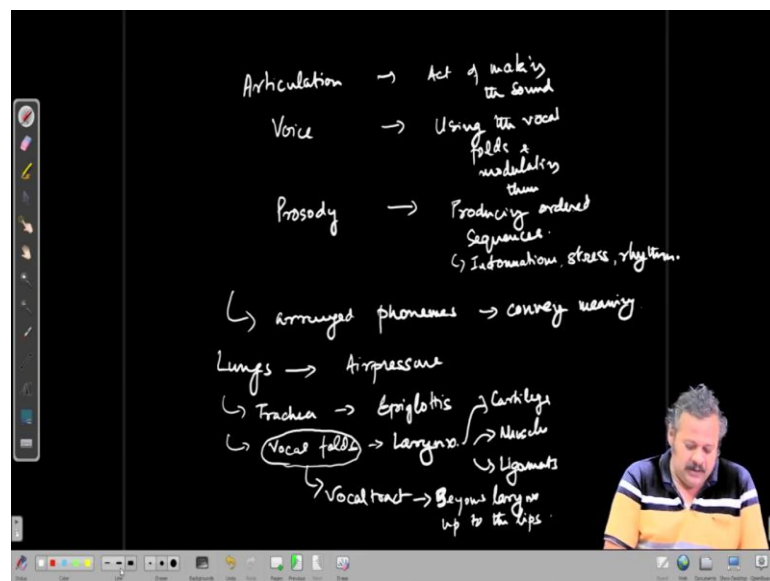 Articulation → Act of making
the sound
Voice → Using the vocal
folds &
modulating
them
Prosody → Producing ordered
sequences.
↳ Intonation, stress, rhythm.
↳ arranged phonemes → convey meaning.
Lungs → Airpressure
↳ Trachea → Epiglottis
↳ Vocal folds → Larynx. → Cartilage
→ Muscle
↳ Ligaments
↳ Vocal tract → Beyond larynx
up to the lips.